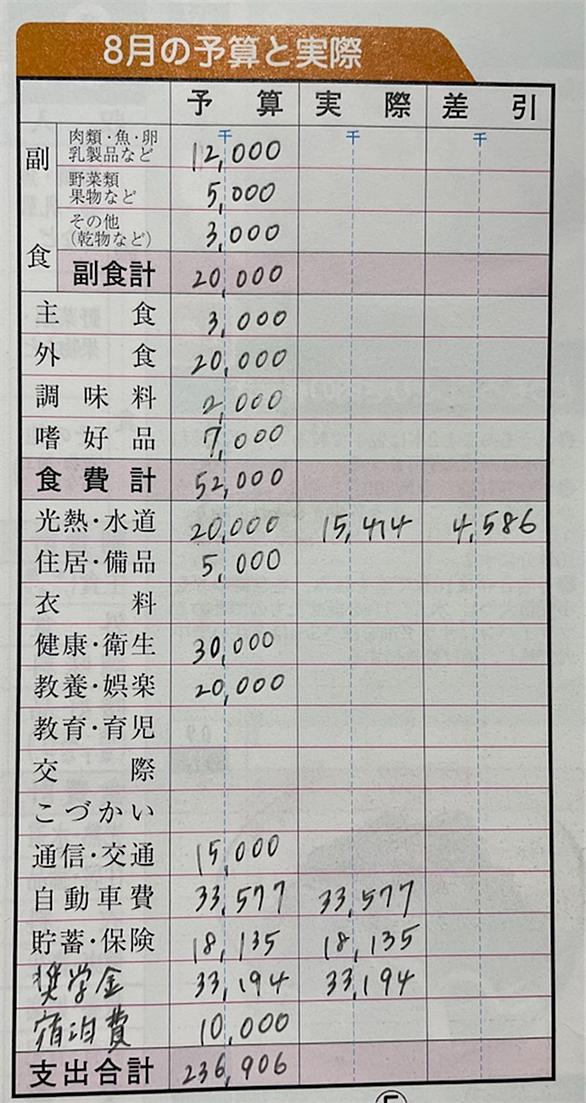 8月の予算と実際
予算 実際 差引
千 千 千
副食
肉類・魚・卵
乳製品など 12,000
野菜類
果物など 5,000
その他
(乾物など) 3,000
副食計 20,000
主食 3,000
外食 20,000
調味料 2,000
嗜好品 7,000
食費計 52,000
光熱・水道 20,000 15,414 4,586
住居・備品 5,000
衣料
健康・衛生 30,000
教養・娯楽 20,000
教育・育児
交際
こづかい
通信・交通 15,000
自動車費 33,577 33,577
貯蓄・保険 18,135 18,135
奨学金 33,194 33,194
宿泊費 10,000
支出合計 236,906